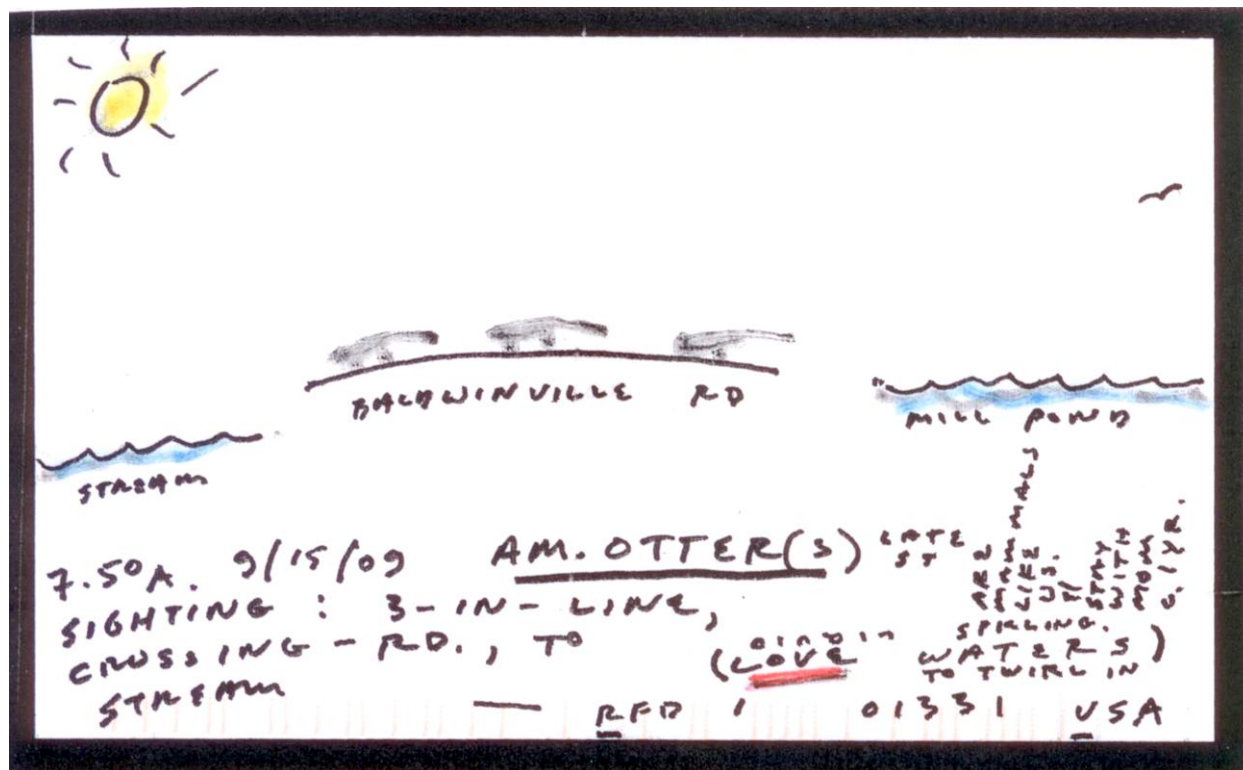 BALDWINVILLE RD
MILL POND
STREAM
7.50A. 9/15/09 AM. OTTER(S)
SIGHTING: 3-IN-LINE,
CROSSING-RD., TO
STREAM
ARE
MAMMALS
LIKE
US.
STAY
WITH
MOM
SPRLING.
(LOVE WATERS)
TO TWIRL IN
— RFD 1 01331 USA